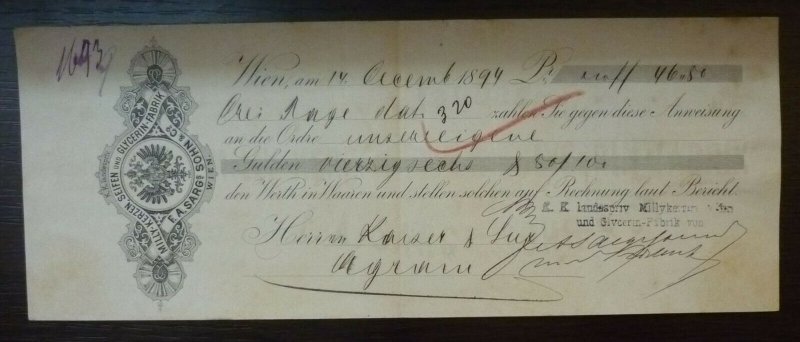 1693
MILLY-KERZEN SEIFEN UND GLYCERIN-FABRIK
F.A. SARG'S SOHN & Co.
WIEN
Wien, am 14 Decemb 1894 Pr. auff 46.80
Drei Tage dat. zahlen Sie gegen diese Anweisung
320
an die Ordre unsereigene
Gulden vierzigsechs & 80/100
den Werth in Waaren und stellen solchen auf Rechnung laut Bericht.
K. K landespriv Millykerzen
und Glycerin-Fabrik von
Herren Kaiser & Lug
F A Sarg's Sohn
Agram